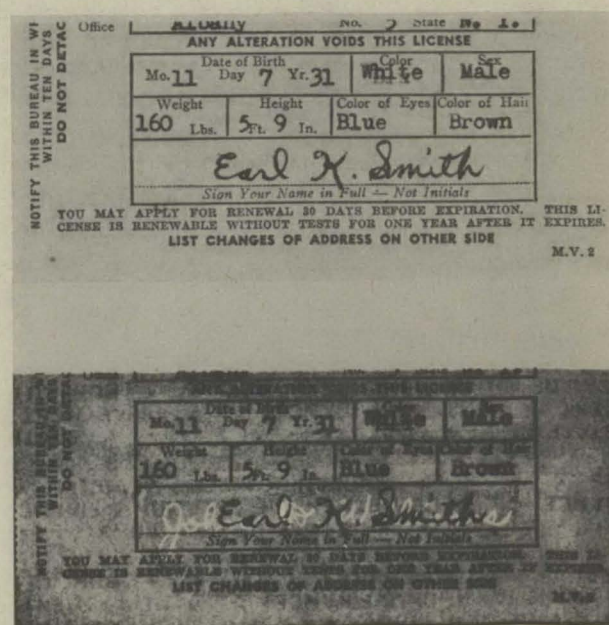 NOTIFY THIS BUREAU IN WI
WITHIN TEN DAYS
DO NOT DETAC
Office Albany No. 5 State
ANY ALTERATION VOIDS THIS LICENSE
Date of Birth
Mo. 11 Day 7 Yr. 31
Color
White
Sex
Male
Weight
160 Lbs.
Height
5 Ft. 9 In.
Color of Eyes
Blue
Color of Hair
Brown
Earl K. Smith
Sign Your Name in Full — Not Initials
YOU MAY APPLY FOR RENEWAL 30 DAYS BEFORE EXPIRATION. THIS LI-
CENSE IS RENEWABLE WITHOUT TESTS FOR ONE YEAR AFTER IT EXPIRES.
LIST CHANGES OF ADDRESS ON OTHER SIDE
M.V. 2
NOTIFY THIS BUREAU IN WI
WITHIN TEN DAYS
DO NOT DETAC
ANY ALTERATION VOIDS THIS LICENSE
Date of Birth
Mo. 11 Day 7 Yr. 31
White
Male
Weight
160 Lbs.
Height
5 Ft. 9 In.
Color of Eyes
Blue
Color of Hair
Brown
Earl K. Smith
Sign Your Name in Full — Not Initials
YOU MAY APPLY FOR RENEWAL 30 DAYS BEFORE EXPIRATION. THIS LI-
CENSE IS RENEWABLE WITHOUT TESTS FOR ONE YEAR AFTER IT EXPIRES.
LIST CHANGES OF ADDRESS ON OTHER SIDE
M.V. 2